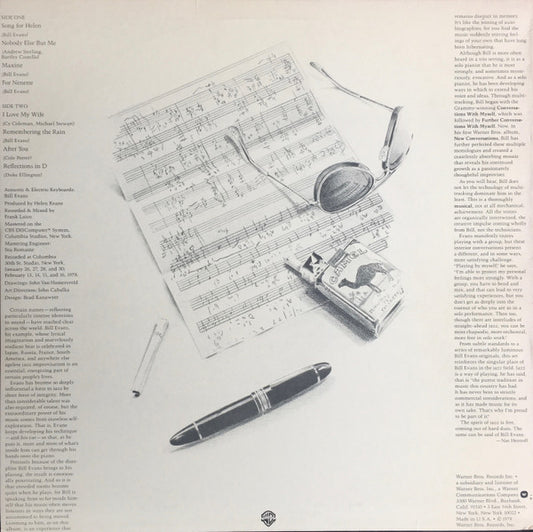 SIDE ONE
Song for Helen
(Bill Evans)
Nobody Else But Me
Maxine
(Bill Evans)
For Nenette
(Bill Evans)
SIDE TWO
I Love My Wife
(Cy Coleman, Michael Stewart)
Remembering the Rain
(Bill Evans)
After You
(Cole Porter)
Reflections in D
(Duke Ellington)
Acoustic & Electric Keyboards:
Bill Evans
Produced by Helen Keane
Recorded & Mixed by
Frank Laico
Mastered on the
System,
Columbia Studios, New York.
Mastering Engineer:
Stu Romaine
Recorded at Columbia
30th St. Studio, New York.
January 26, 27, 28, and 30;
February 13, 14, 15, and 16, 1978.
Drawings: John Van Hamersveld
Art Direction: John Cabalka
Design: Brad Kanawyer
Certain names—reflecting
particularly intense identities
in sound—have reached clear
across the world. Bill Evans,
for example, whose lyrical
imagination and marvelously
resilient beat is celebrated in
Japan, Russia, France, South
America, and anywhere else
ageless jazz improvisation is an
essential, energizing part of
certain people's lives.
Evans has become so deeply
influential a force in jazz by
sheer force of integrity. More
than considerable talent was
also required, of course, but the
extraordinary power of his
music comes from ceaseless self-
exploration. That is, Evans
keeps developing his technique
—and his ear—so that, as he
puts it, more and more of what's
inside him can get through his
hands onto the piano.
Precisely because of the
discipline Bill Evans brings to his
playing, the result is emotion-
ally penetrating. And so it is
that crowded rooms become
quiet when he plays, for Bill is
speaking from so far inside him-
self that his music often moves
listeners in ways they are not
accustomed to being moved.
Listening to him, as on this
album, is an experience that
remains deep in memory.
It's like the mining of auto-
biographies, for you find the
music suddenly stirring feel-
ings of your own that have long
been hibernating.
Although Bill is more often
heard in a trio setting, it is as a
solo pianist that he is most
strongly, and sometimes myste-
riously, evocative. And as a solo
pianist, he has been developing
ways in which to extend his
voice and ideas. Through multi-
tracking, Bill began with the
Grammy-winning Conversa-
tions With Myself, which was
followed by Further Conversa-
tions With Myself. Now, in
his first Warner Bros. album,
New Conversations, Bill has
further perfected these multiple
monologues and created a
ceaselessly absorbing mosaic
that reveals his continued
growth as a passionately
thoughtful improviser.
As you will hear, Bill does
not let the technology of multi-
tracking dominate him in the
least. This is a thoroughly
musical, not at all mechanical,
achievement. All the voices
are organically intertwined, the
creative impulse coming wholly
from Bill, not the technicians.
Evans manifestly enjoys
playing with a group, but these
intense conversations present
a different, and in some ways,
more satisfying challenge.
"Playing by myself," he says,
"I'm able to protect my personal
feelings more strongly. With a
group, you have to bend and
mix, and that can lead to very
satisfying experiences, but you
don't get as deeply into the
essence of who you are as in a
solo performance. Then too,
though there are interludes of
straight-ahead jazz, you can be
more rhapsodic, more orchestral,
more free in solo work."
From subtle standards to a
series of remarkably luminous
Bill Evans originals, this set
reinforces the singular place of
Bill Evans in the jazz field. Jazz
is a way of playing, he has said,
that is "the purest tradition in
music this country has had.
It has never bent to strictly
commercial considerations, and
so it has made music for its
own sake. That's why I'm proud
to be part of it."
The spirit of jazz is free,
coming out of hard discipline. The
same can be said of Bill Evans.
—Nat Hentoff
CAMEL
Warner Bros. Records Inc.
a subsidiary and licensee of
Warner Bros. Inc., a Warner
Communications Company
3300 Warner Blvd., Burbank,
Calif. 91510 • 3 East 54th Street,
New York, New York 10022
Made in U.S.A. © 1978
Warner Bros. Records Inc.